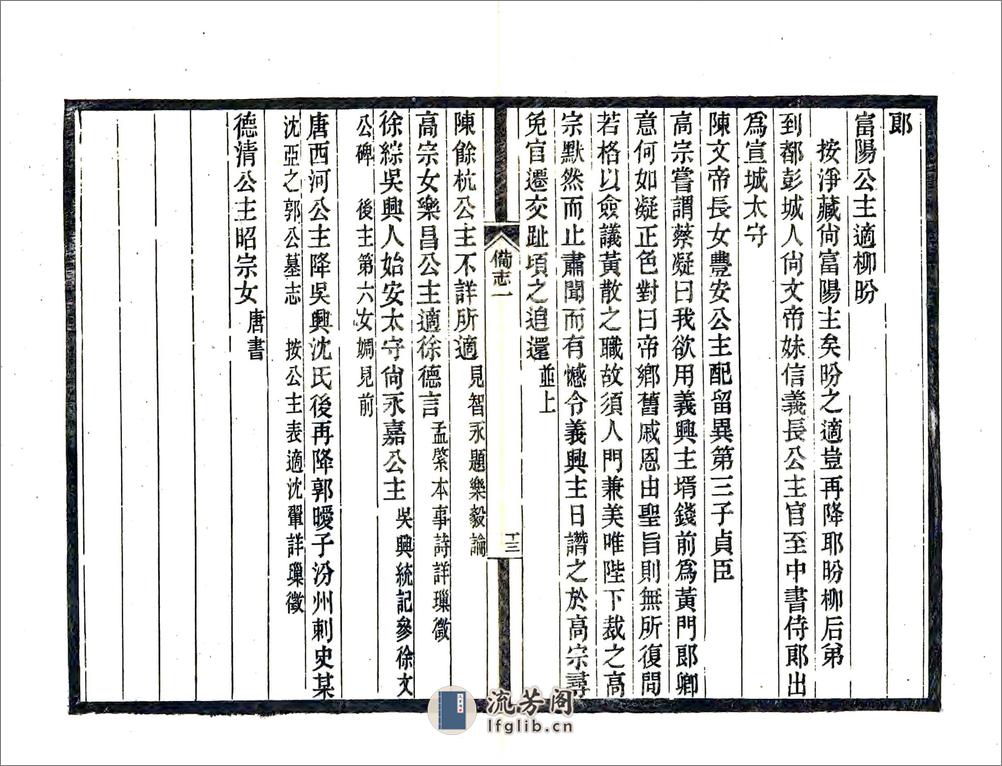 郎
富陽公主適柳盼
按淨藏尙富陽主矣盼之適豈再降耶盼柳后弟
到都彭城人尙文帝妹信義長公主官至中書侍郎出
爲宣城太守
陳文帝長女豐安公主配留異第三子貞臣
高宗嘗謂蔡凝曰我欲用義興主壻錢前爲黃門郎卿
意何如凝正色對曰帝鄉舊戚恩由聖旨則無所復問
若格以僉議黃散之職故須人門兼美唯陛下裁之高
宗默然而止肅聞而有憾令義興主日譖之於高宗尋
免官遷交趾頃之追還並上
備志一
十三
陳餘杭公主不詳所適見智永題樂毅論
高宗女樂昌公主適徐德言孟棨本事詩詳璅徵
徐綜吳興人始安太守尙永嘉公主吳興統記參徐文
公碑 後主第六女婤見前
唐西河公主降吳興沈氏後再降郭曖子汾州刺史某
沈亞之郭公墓志 按公主表適沈翬詳璅徵
德清公主昭宗女唐書
流芳阁
lfglib.cn